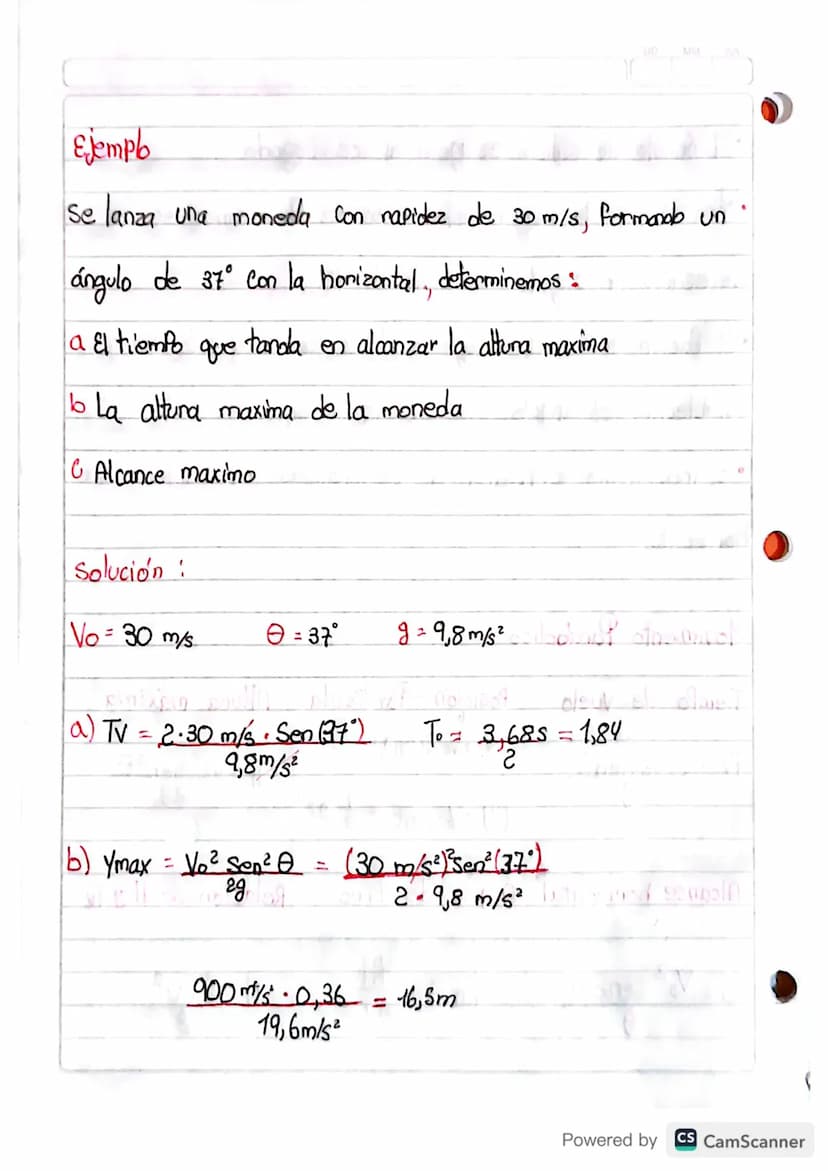 Ejemplo
Se lanza una moneda con rapidez de 30 m/s, formando un
ángulo de 37° con la horizontal, determinemos:
a El tiempo que tarda en alcanzar la altura maxima
b La altura maxima de la moneda
c Alcance maximo
Solución:
Vo = 30 m/s θ = 37° g = 9,8 m/s²
a) TV = 2·30 m/s · Sen (37°) / 9,8 m/s² To = 3,68s / 2 = 1,84
b) Ymax = Vo² Sen² θ / 2g = (30 m/s²)² Sen² (37°) / 2 · 9,8 m/s²
900 m²/s² · 0,36 / 19,6 m/s² = 16,5m
Powered by CS CamScanner